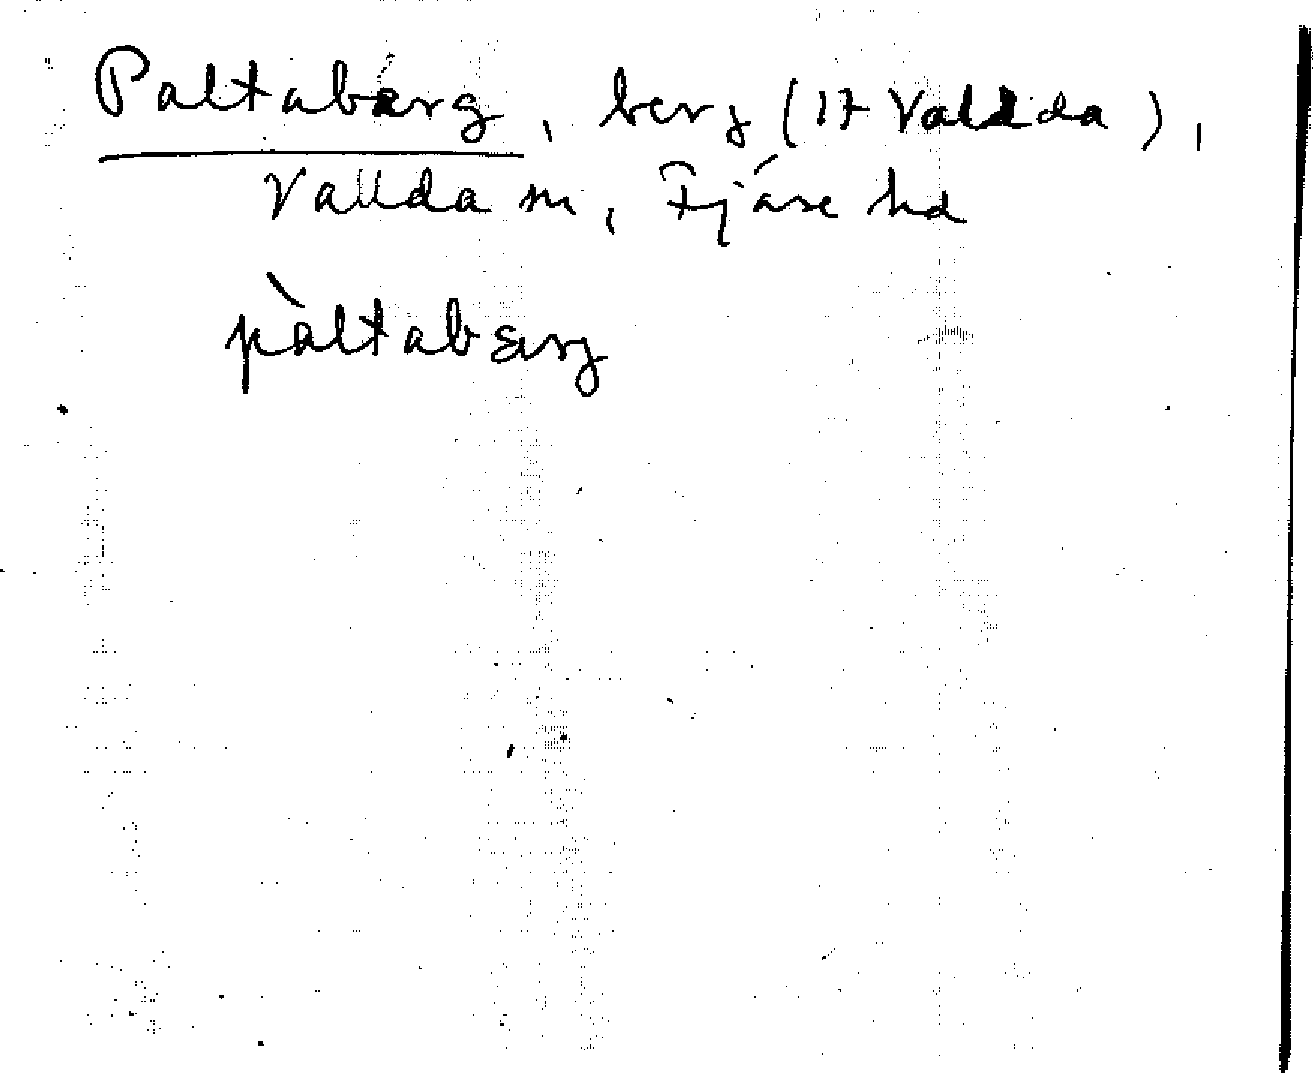 Paltabärg, berg (17 Vallda),
Vallda sn, Fjäre hd
pàltabärg